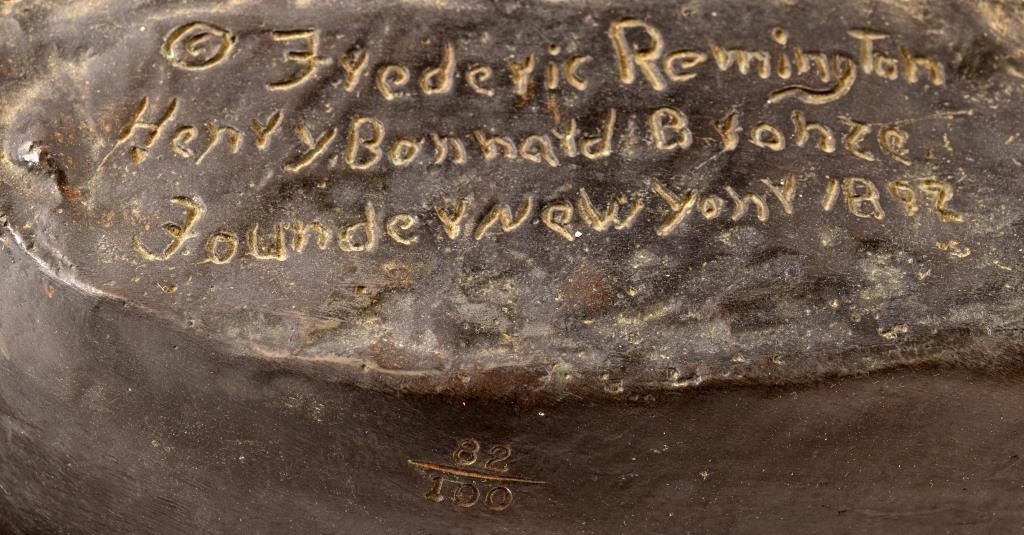 © Frederic Remington
Henry Bonnard Bronze
Founder New Yory 1892
82
100